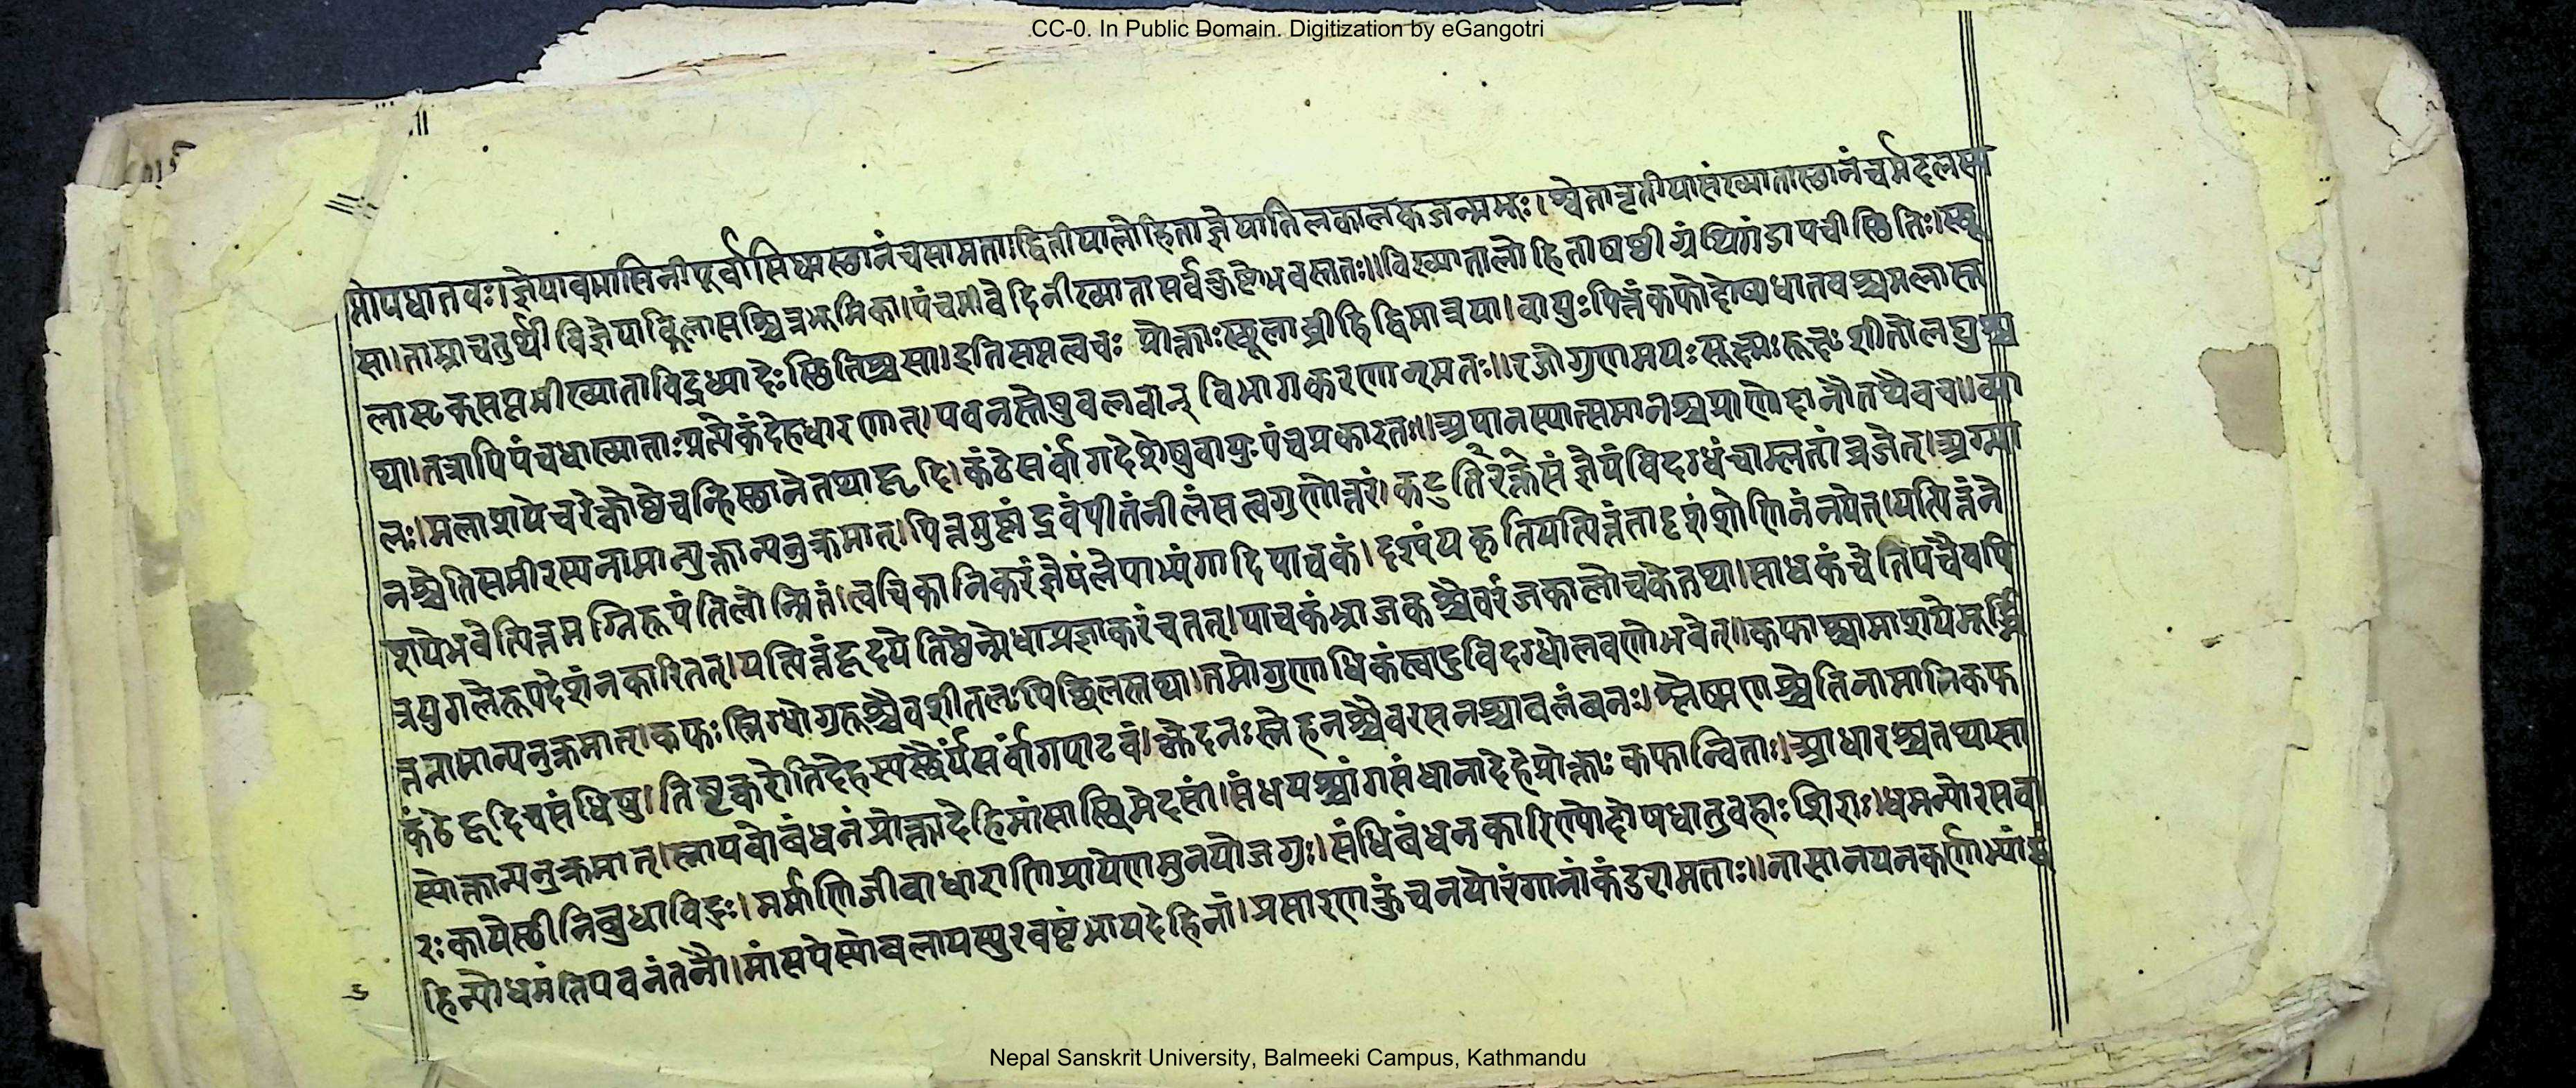 CC-0. In Public Domain. Digitization by eGangotri
प्तोपधातवः।ज्ञेयावभासिनीपूर्वासिध्मस्थानंचसामता।द्वितीयालोहिताज्ञेयातिलकालकजन्मभूः।श्वेतातृतीयासंख्यातास्थानंचर्मदलसा
सा।ताम्राचतुर्थीविज्ञेयाकिलासश्चित्रभूमिका।पंचमीवेदिनीख्यातासर्वकुष्टोभवस्ततः॥विख्यातालोहिताषष्ठीग्रंथिगंडापचीस्थितिः।स्थू
लास्टक्सप्तमीख्याताविद्रध्यादेःस्थितिश्चसा।इतिसप्तत्वचः प्रोक्ताःस्थूलाव्रीहिद्विमात्रया।वायुःपित्तंकफोदोषाधातवश्चमलास्त
था।तत्रापिपंचधाख्याताःप्रत्येकंदेहधारणात्।पवनस्तेषुबलवान् विभागकरणान्मतः॥रजोगुणमयःसूक्ष्मःरूक्षःशीतोलघुश्च
लः।मलाशयेचरेत्कोष्ठेचन्हिस्थानेतथाहृदि।कंठेसर्वांगदेशेषुवायुःपंचप्रकारतः॥अपानस्यात्समानश्चप्राणोदानौतथैवच॥व्या
नश्चेतिसमीरस्यनामान्युक्तान्यनुक्रमात्।पित्तमुष्णंद्रवंपीतंनीलंसत्वगुणोत्तरं।कटुतिक्तरसंज्ञेयंविदग्धंचाम्लतांव्रजेत्।अग्न्या
शयेभवेत्पित्तमग्निरूपंतिलोन्मितं।त्वचिकानिकरंज्ञेयंलेपाभ्यंगादिपाचकं।दृश्यंयकृतियत्पित्तंतादृशंशोणितंनयेत्।यत्पित्तंने
त्रयुगलेरूपदेर्शनकारितत्।यत्पित्तंहृदयेतिष्ठेन्मेधाप्रज्ञाकरंचतत्।पाचकंभ्राजकश्चैवरंजकालोचकेतथा।साधकंचेतिपंचैवपि
त्तनामान्यनुक्रमात्।कफःस्निग्धोगुरूश्चैवशीतलःपिच्छिलस्तथा।तमोगुणाधिकंस्वादुविदग्धोलवणोभवेत्॥कफाश्चामाशयेमूर्ध्नि
कंठेहृदिचसंधिषु।तिष्टन्करोतिदेहस्यस्थैर्यंसर्वांगपाटवं।क्लेदनःस्नेहनश्चैवरसनश्चावलंबनः।श्लेष्मणश्चेतिनामानिकफ
स्योक्तान्यनुक्रमात्।स्नायवोबंधनंप्रोक्तादेहिमांसास्थिमेदसां।संधयश्चांगसंधानादेहेप्रोक्ताःकफान्विताः।आधारश्चतथासा
रःकायेस्थीनिबुधाविदुः।मर्माणिजीवाधाराणिप्रायेणमुनयोजगुः।संधिबंधनकारिण्योदोषधातुवहाःशिराः।धमन्योरसवा
हिन्योधमंतिपवनंतनौ।मांसपेस्योबलायस्युरवष्टंभायदेहिनां।प्रसारणाकुंचनयोरंगानांकंडुरामताः॥नासानयनकर्णाभ्यां
Nepal Sanskrit University, Balmeeki Campus, Kathmandu